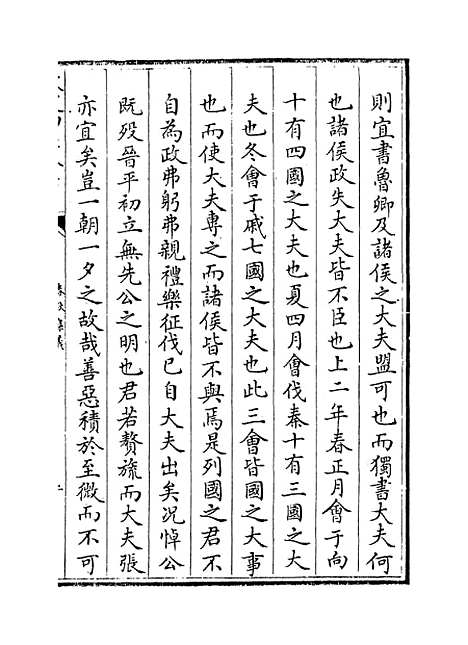 則宜書魯卿及諸侯之大夫盟可也而獨書大夫何
也諸侯政失大夫皆不臣也上二年春正月會于向
十有四國之大夫也夏四月會伐秦十有三國之大
夫也冬會于戚七國之大夫也此三會皆國之大事
也而使大夫專之而諸侯皆不與焉是列國之君不
自為政弗躬弗親禮樂征伐已自大夫出矣况悼公
既歿晉平初立無先公之明也君若贅旒而大夫張
亦宜矣豈一朝一夕之故哉善惡積於至微而不可